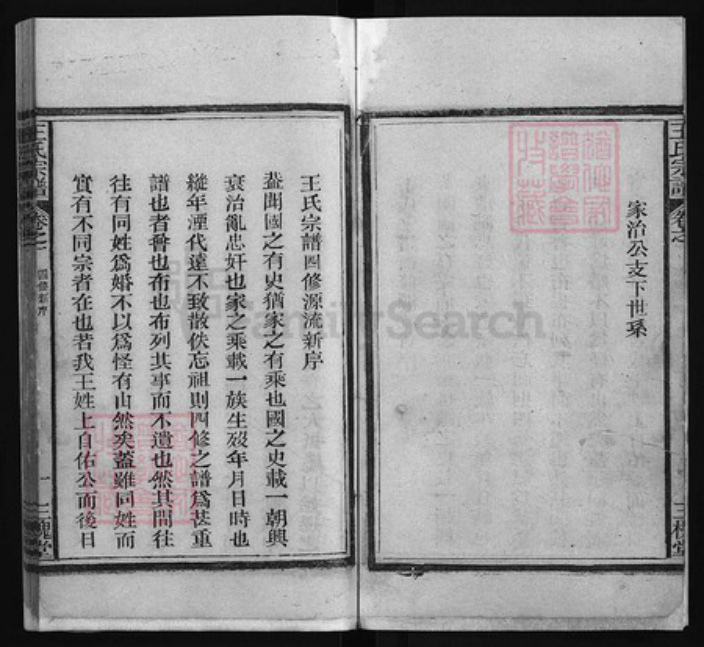 王氏宗譜
卷之一
家治公支下世系
三槐堂
王氏宗譜四修源流新序
蓋聞國之有史猶家之有乘也國之史載一朝興
衰治亂忠奸也家之乘載一族生歿年月日時也
縱年湮代遠不致散佚忘祖則四修之譜為甚重
譜也者普也布也布列其事而不遺也然其間往
往有同姓為婚不以為怪有由然矣蓋雖同姓而
實有不同宗者在也若我王姓上自佑公而後日
王氏宗譜
卷之一
四修新序
一
三槐堂
FamilySearch